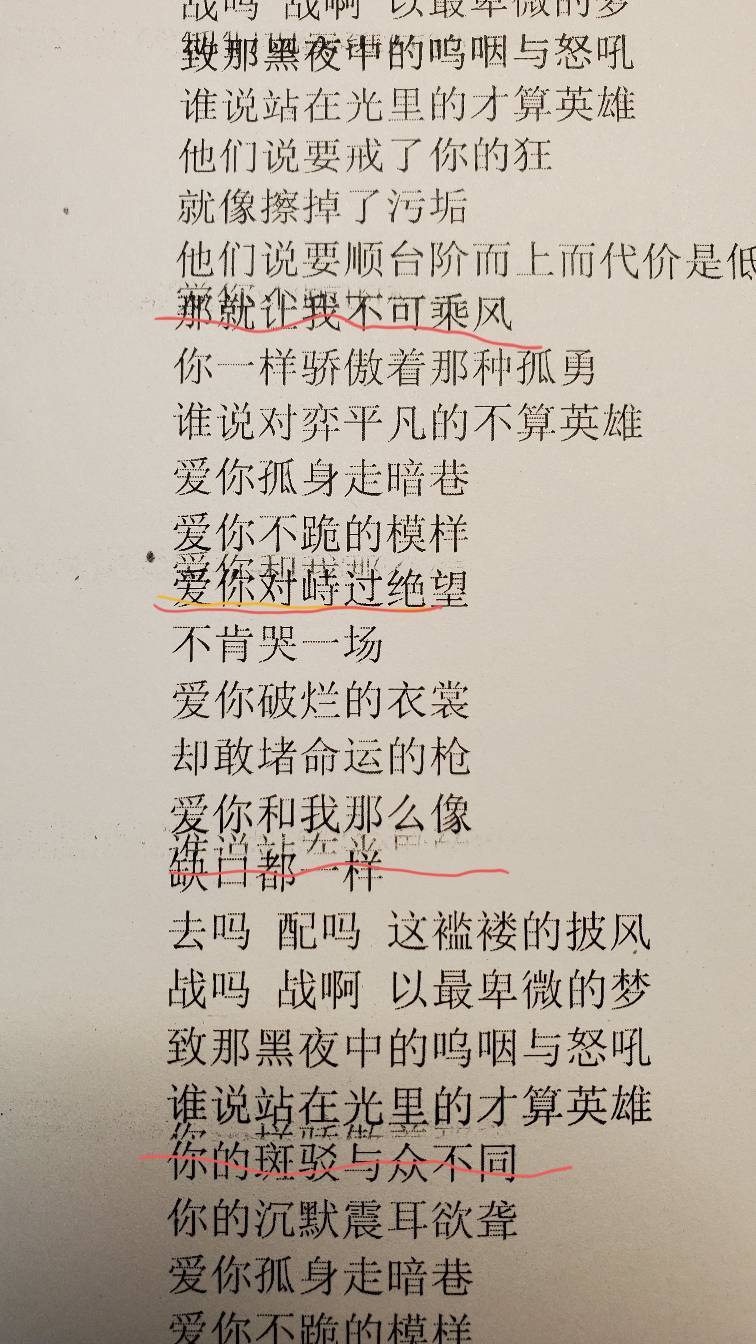 战吗 战啊 以最卑微的梦
致那黑夜中的呜咽与怒吼
谁说站在光里的才算英雄
他们说要戒了你的狂
就像擦掉了污垢
他们说要顺台阶而上而代价是低
那就让我不可乘风
你一样骄傲着那种孤勇
谁说对弈平凡的不算英雄
爱你孤身走暗巷
爱你不跪的模样
爱你对峙过绝望
不肯哭一场
爱你破烂的衣裳
却敢堵命运的枪
爱你和我那么像
缺口都一样
去吗 配吗 这褴褛的披风
战吗 战啊 以最卑微的梦
致那黑夜中的呜咽与怒吼
谁说站在光里的才算英雄
你的斑驳与众不同
你的沉默震耳欲聋
爱你孤身走暗巷
爱你不跪的模样